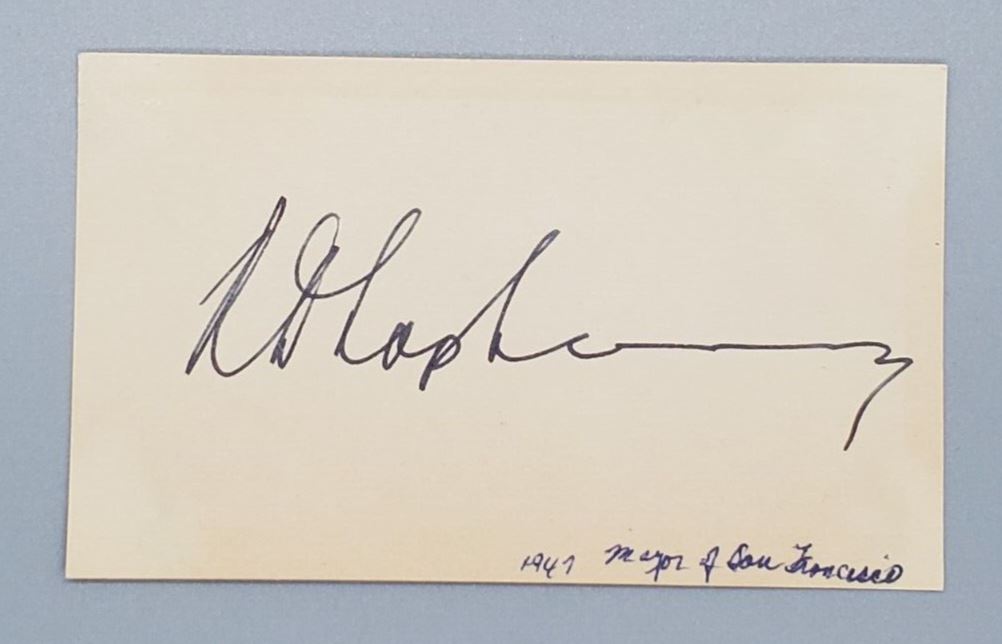 RDLapham
1947 Mayor of San Francisco